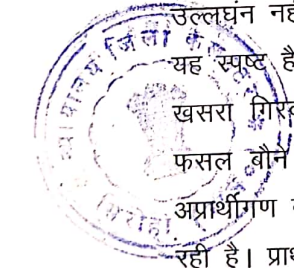 उल्लघंन नहीं
यह स्पष्ट है
खसरा
फसल बौने
अप्रार्थीगण
रही है। प्रार्थ
न्यायालय जिला
सिरोही